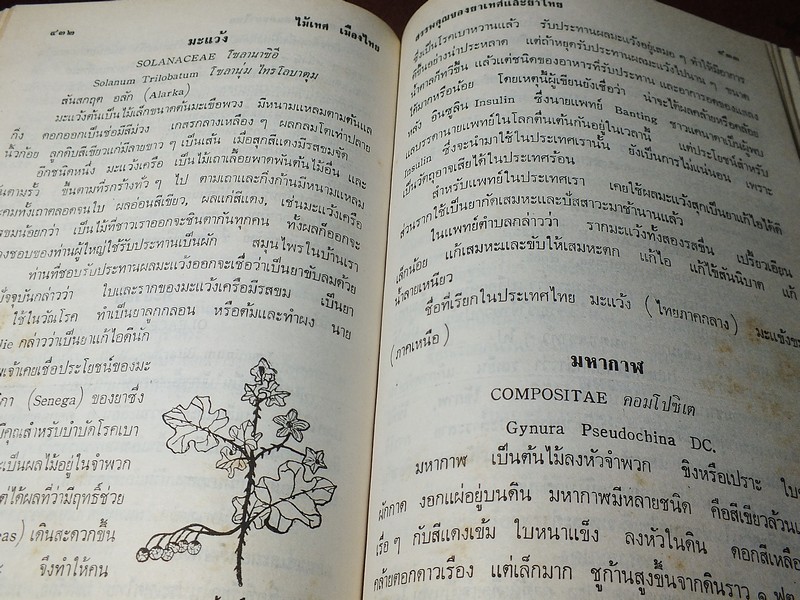 ๔๓๒ ไม้เทศ เมืองไทย
มะแว้ง
SOLANACEAE โซลานาซิอี
Solanum Trilobatum โซลานุ่ม ไทรโลบาตุม
สันสกฤต อลัก (Alarka)
มะแว้งต้นเป็นไม้เล็กขนาดต้นมะเขือพวง มีหนามแหลมตามต้นแล
กิ่ง ดอกออกเป็นช่อมีสีม่วง เกสรกลางเหลือง ๆ ผลกลมโตเท่าปลาย
นิ้วก้อย ลูกดิบสีเขียวแก่มีลายขาว ๆ เป็นเส้น เมื่อสุกสีแดงมีรสขมจัด
อีกชนิดหนึ่ง มะแว้งเครือ เป็นไม้เถาเลื้อยพาดพันต้นไม้อื่น และ
ันตามรั้ว ขึ้นตามที่รกร้างทั่ว ๆ ไป ตามเถาและกิ่งก้านมีหนามแหลม
ะคมทั้งเถาตลอดจนใบ ผลอ่อนสีเขียว, ผลแก่สีแดง, เช่นมะแว้งเครือ
รสขมน้อยกว่า เป็นไม้ที่ชาวเราออกจะชินตากันทุกคน ทั้งผลก็ออกจะ
องชอบของท่านผู้ใหญ่ใช้รับประทานเป็นผัก สมุนไพรในบ้านเรา
ท่านที่ชอบรับประทานผลมะแว้งออกจะเชื่อว่าเป็นยาขับลมด้วย
ปัจจุบันกล่าวว่า ใบและรากของมะแว้งเครือมีรสขม เป็นยา
ใช้ในวัณโรค ทำเป็นยาลูกกลอน หรือต้มและทำผง นาย
ie กล่าวว่าเป็นยาแก้ไอดีนัก
พเจ้าเคยเชื่อประโยชน์ของมะ
กา (Senega) ของยาซึ่ง
มีคุณสำหรับบำบัดโรคเบา
ะเป็นผลไม้อยู่ในจำพวก
ต่ได้ผลที่ว่ามีฤทธิ์ช่วย
eas) เดินสะดวกขึ้น
จึงทำให้คน
สรรพคุณของยาเทศและยาไทย ๔๓๓
ซึ่งเป็นโรคเบาหวานแล้ว รับประทานผลมะแว้งอยู่เสมอ ๆ ทำให้มีอาการ
ดีขึ้นอย่างน่าประหลาด แต่ถ้าหยุดรับประทานมะแว้งไปนาน ๆ ขนาด
น้ำตาลก็ทวีขึ้น แล้วแต่ชนิดของอาหารที่รับประทาน และอาการวอดของแสลง
ได้มากหรือน้อย โดยเหตุนี้ผู้เขียนยังเชื่อว่า น่าจะได้ผลคล้ายหรือคล้อย
หลัง อินซูลิน Insulin ซึ่งนายแพทย์ Banting ชาวแคนาดาเป็นผู้พบ
และบรรดานายแพทย์ในโลกตื่นเต้นกันอยู่ในเวลานี้ แต่ประโยชน์สำหรับ
Insulin ซึ่งจะนำมาใช้ในประเทศเรานั้น ยังเป็นการไม่แน่นอน เพราะ
เป็นวัตถุอาจเสียได้ในประเทศร้อน
สำหรับแพทย์ในประเทศเรา เคยใช้ผลมะแว้งสุกเป็นยาแก้ไอได้ดี
ส่วนรากใช้เป็นยากัดเสมหะและปัสสาวะมาช้านานแล้ว
ในแพทย์ตำบลกล่าวว่า รากมะแว้งทั้งสองรสขื่น เปรี้ยวเอียน
เล็กน้อย แก้เสมหะและขับให้เสมหะตก แก้ไอ แก้ไข้สันนิบาต แก้
น้ำลายเหนียว
ชื่อที่เรียกในประเทศไทย มะแว้ง (ไทยภาคกลาง) มะแข้งข
(ภาคเหนือ)
มหากาฬ
COMPOSITAE คอมโปซิเต
Gynura Pseudochina DC.
มหากาฬ เป็นต้นไม้ลงหัวจำพวก ขิงหรือเปราะ ใบ
ผักกาด งอกแผ่อยู่บนดิน มหากาฬมีหลายชนิด คือสีเขียวล้วน
เรื่อ ๆ กับสีแดงเข้ม ใบหนาแข็ง ลงหัวในดิน ดอกสีเหลือ
คล้ายดอกดาวเรือง แต่เล็กมาก ชูก้านสูงขึ้นจากดินราว ๑ ฟุต